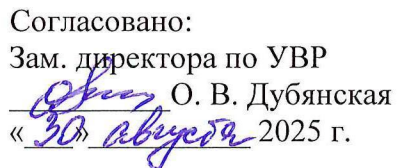 Согласовано:
Зам. директора по УВР
О. В. Дубянская
«30» августа 2025 г.